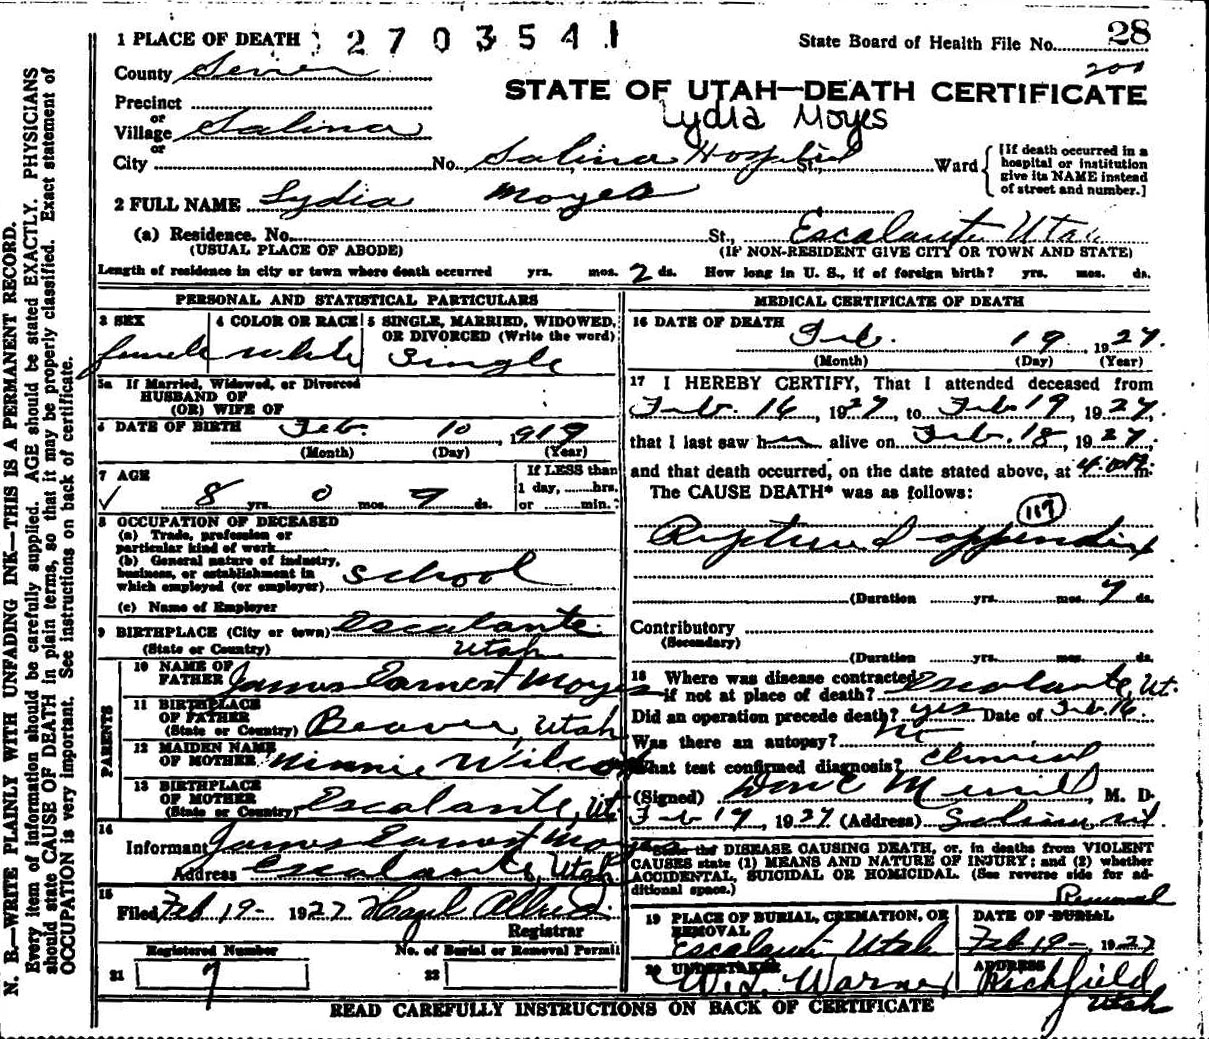 1 PLACE OF DEATH 2 7 0 3 5 4 1
State Board of Health File No. 28
200
County Sevier
STATE OF UTAH—DEATH CERTIFICATE
Lydia Moyes
Precinct
or
Village Salina
or
City No. Salina Hospital St., Ward
[If death occurred in a
hospital or institution
give its NAME instead
of street and number.]
2 FULL NAME Lydia Moyes
(a) Residence. No. St., Escalante Utah
(USUAL PLACE OF ABODE) (IF NON-RESIDENT GIVE CITY OR TOWN AND STATE)
Length of residence in city or town where death occurred yrs. mos. 2 ds. How long in U. S., if of foreign birth? yrs. mos. ds.
PERSONAL AND STATISTICAL PARTICULARS
3 SEX 4 COLOR OR RACE 5 SINGLE, MARRIED, WIDOWED,
OR DIVORCED (Write the word)
female white Single
5a If Married, Widowed, or Divorced
HUSBAND OF
(OR) WIFE OF
6 DATE OF BIRTH Feb. 10, 1919
(Month) (Day) (Year)
7 AGE If LESS than
1 day, hrs.
✓ 8 yrs. 0 mos. 9 ds. or min.
8 OCCUPATION OF DECEASED
(a) Trade, profession or
particular kind of work
(b) General nature of industry,
business, or establishment in
which employed (or employer) School
(c) Name of Employer
9 BIRTHPLACE (City or town) Escalante
(State or Country) Utah
PARENTS
10 NAME OF
FATHER James Earnest Moyes
11 BIRTHPLACE
OF FATHER
(State or Country) Beaver, Utah
12 MAIDEN NAME
OF MOTHER Minnie Wilcox
13 BIRTHPLACE
OF MOTHER
(State or Country) Escalante, Ut.
14
Informant James Earnest Moyes
Address Escalante, Utah
15
Filed Feb 19- 1927 Hazel Allred
Registrar
Registered Number No. of Burial or Removal Permit
21 7 22
MEDICAL CERTIFICATE OF DEATH
16 DATE OF DEATH
Feb. 19 1927.
(Month) (Day) (Year)
17 I HEREBY CERTIFY, That I attended deceased from
Feb. 16, 1927 to Feb 19, 1927,
that I last saw her alive on Feb. 18, 1927,
and that death occurred, on the date stated above, at 4:00 m.
The CAUSE DEATH* was as follows:
117
Ruptured appendix
(Duration yrs. mos. 7 ds.
Contributory
(Secondary)
(Duration yrs. mos. ds.
18 Where was disease contracted
if not at place of death? Escalante, Ut.
Did an operation precede death? yes Date of Feb. 16
Was there an autopsy? no
What test confirmed diagnosis? Clinical
(Signed) , M. D.
Feb 19, 1927 (Address) Salina, Ut.
*State the DISEASE CAUSING DEATH, or, in deaths from VIOLENT
CAUSES state (1) MEANS AND NATURE OF INJURY; and (2) whether
ACCIDENTAL, SUICIDAL OR HOMICIDAL. (See reverse side for ad-
ditional space.)
Removal
19 PLACE OF BURIAL, CREMATION, OR
REMOVAL
Escalante Utah
DATE OF BURIAL
Feb 19- 1927
20 UNDERTAKER
W. L. Warner
ADDRESS
Richfield
Utah
READ CAREFULLY INSTRUCTIONS ON BACK OF CERTIFICATE
N. B.—WRITE PLAINLY WITH UNFADING INK—THIS IS A PERMANENT RECORD.
Every item of information should be carefully supplied. AGE should be stated EXACTLY. PHYSICIANS
should state CAUSE OF DEATH in plain terms, so that it may be properly classified. Exact statement of
OCCUPATION is very important. See instructions on back of certificate.